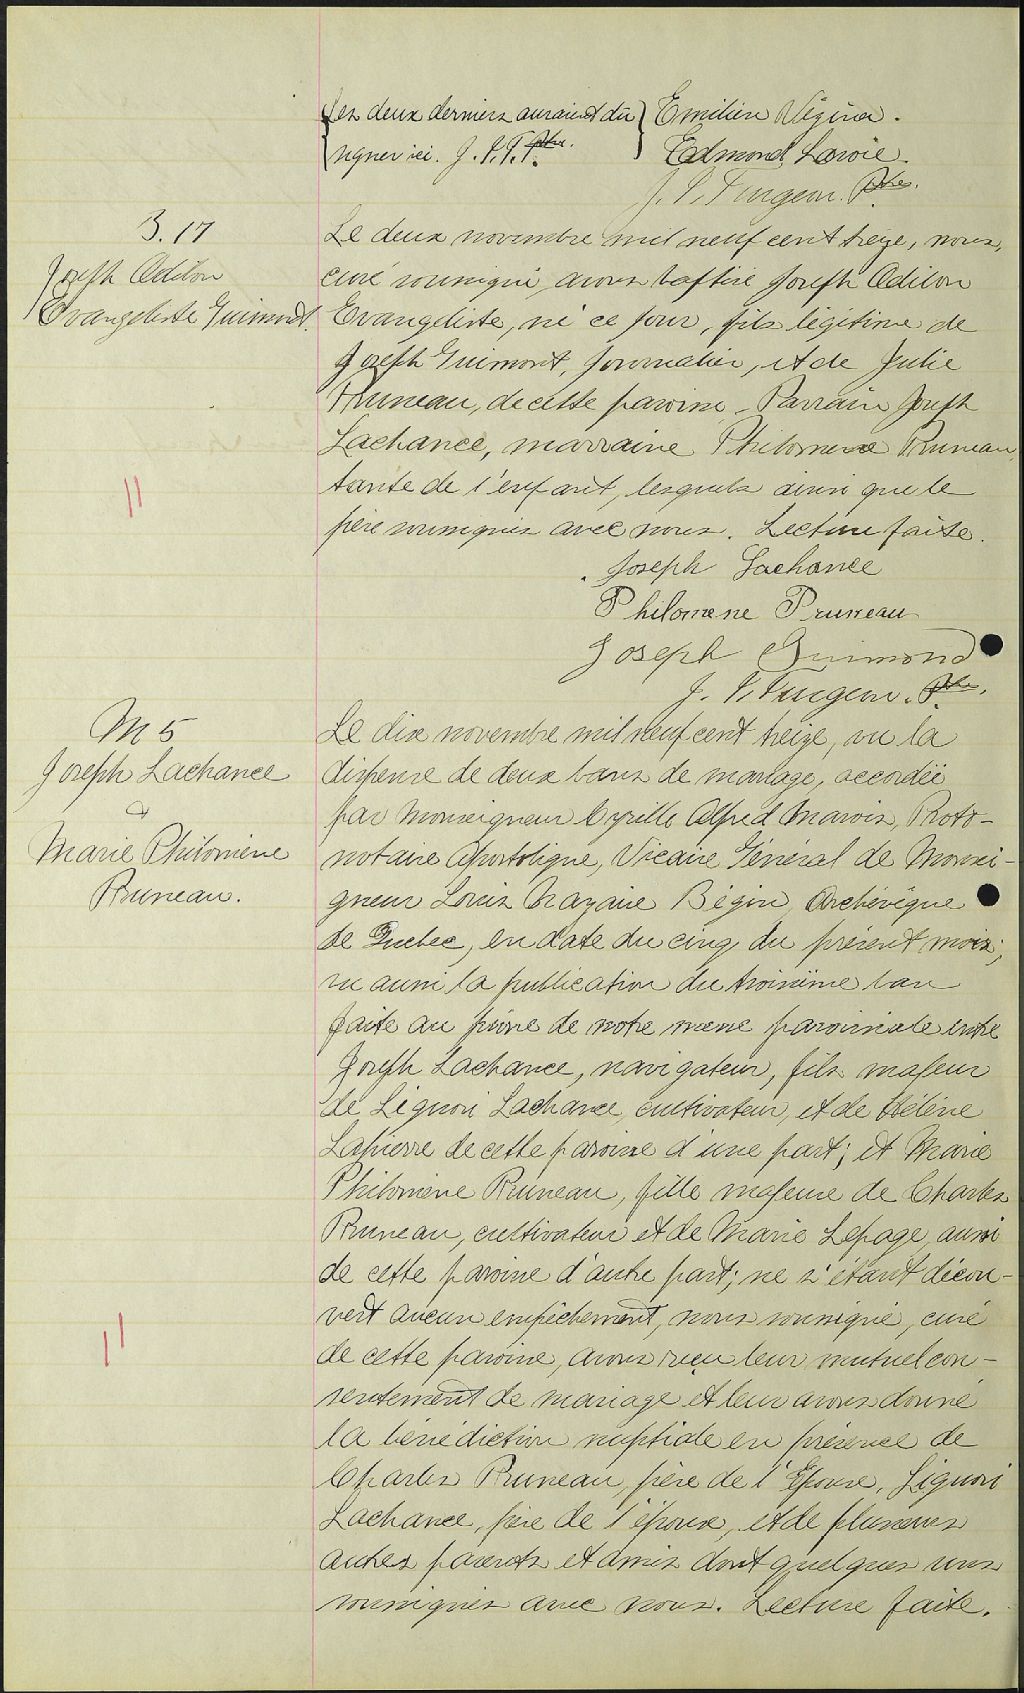 Les deux derniers auraient dû
signer ici. J. P. T. Ptre.
Emilien Vézina.
Edmond Lavoie.
J. P. Turgeon. Ptre.
B. 17
Joseph Odilon
Evangeliste Guimond.
Le deux novembre mil neuf cent treize, nous,
curé soussigné, avons baptisé Joseph Odilon
Evangeliste, né ce jour, fils légitime de
Joseph Guimont, journalier, et de Julie
Pruneau, de cette paroisse. Parrain Joseph
Lachance, marraine Philomène Pruneau,
tante de l'enfant, lesquels ainsi que le
père soussignés avec nous. Lecture faite.
Joseph Lachance
Philomene Pruneau
Joseph Guimond
J. P. Turgeon. Ptre.
M 5
Joseph Lachance
&
Marie Philomène
Pruneau.
Le dix novembre mil neuf cent treize, vu la
dispense de deux bans de mariage, accordée
par Monseigneur Cyrille Alfred Marois, Proto-
notaire Apostolique, Vicaire Général de Monsei-
gneur Louis Nazaire Bégin, Archévêque
de Québec, en date du cinq du présent mois;
vu aussi la publication du troisième ban
faite au prône de notre messe paroissiale entre
Joseph Lachance, navigateur, fils majeur
de Liguori Lachance, cultivateur, et de Hélène
Lapierre de cette paroisse d'une part; et Marie
Philomène Pruneau, fille majeure de Charles
Pruneau, cultivateur et de Marie Lepage, aussi
de cette paroisse d'autre part; ne s'étant décou-
vert aucun empêchement, nous soussigné, curé
de cette paroisse, avons reçu leur mutuel con-
sentement de mariage et leur avons donné
la bénédiction nuptiale en présence de
Charles Pruneau, père de l'Epouse, Liguori
Lachance, père de l'époux, et de plusieurs
autres parents et amis dont quelques uns
soussignés avec nous. Lecture faite.